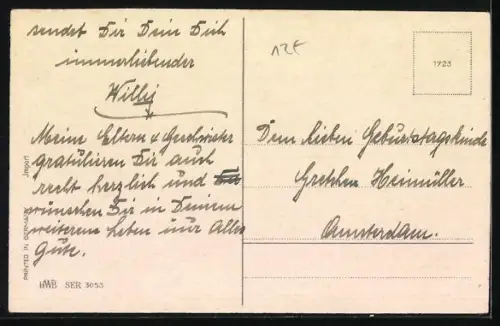 sendet Dir Dein Dich
immerliebender
Willij
Meine Eltern & Geschwister
gratulieren Dir auch
recht herzlich und
wünschen Dir in Deinem
weiteren Leben nur Alles
Gute.
12€
1723
Dem lieben Geburtstagskinde
Gretchen Heimüller
Amsterdam.
PRINTED IN GERMANY Import
HWB SER 3053